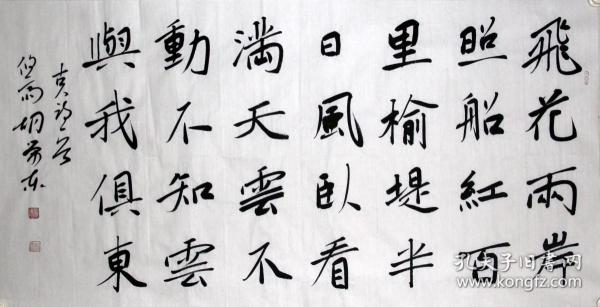 飛花兩岸
照船紅百
里榆堤半
日風臥看
滿天雲不
動不知雲
與我俱東
孔夫子旧书网
www.kongfz.com